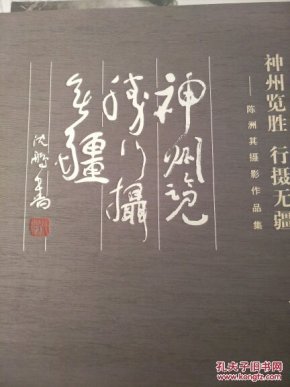 神州览胜 行摄无疆
——陈洲其摄影作品集
神州览
胜行摄
无疆
沈鹏题
孔夫子旧书网